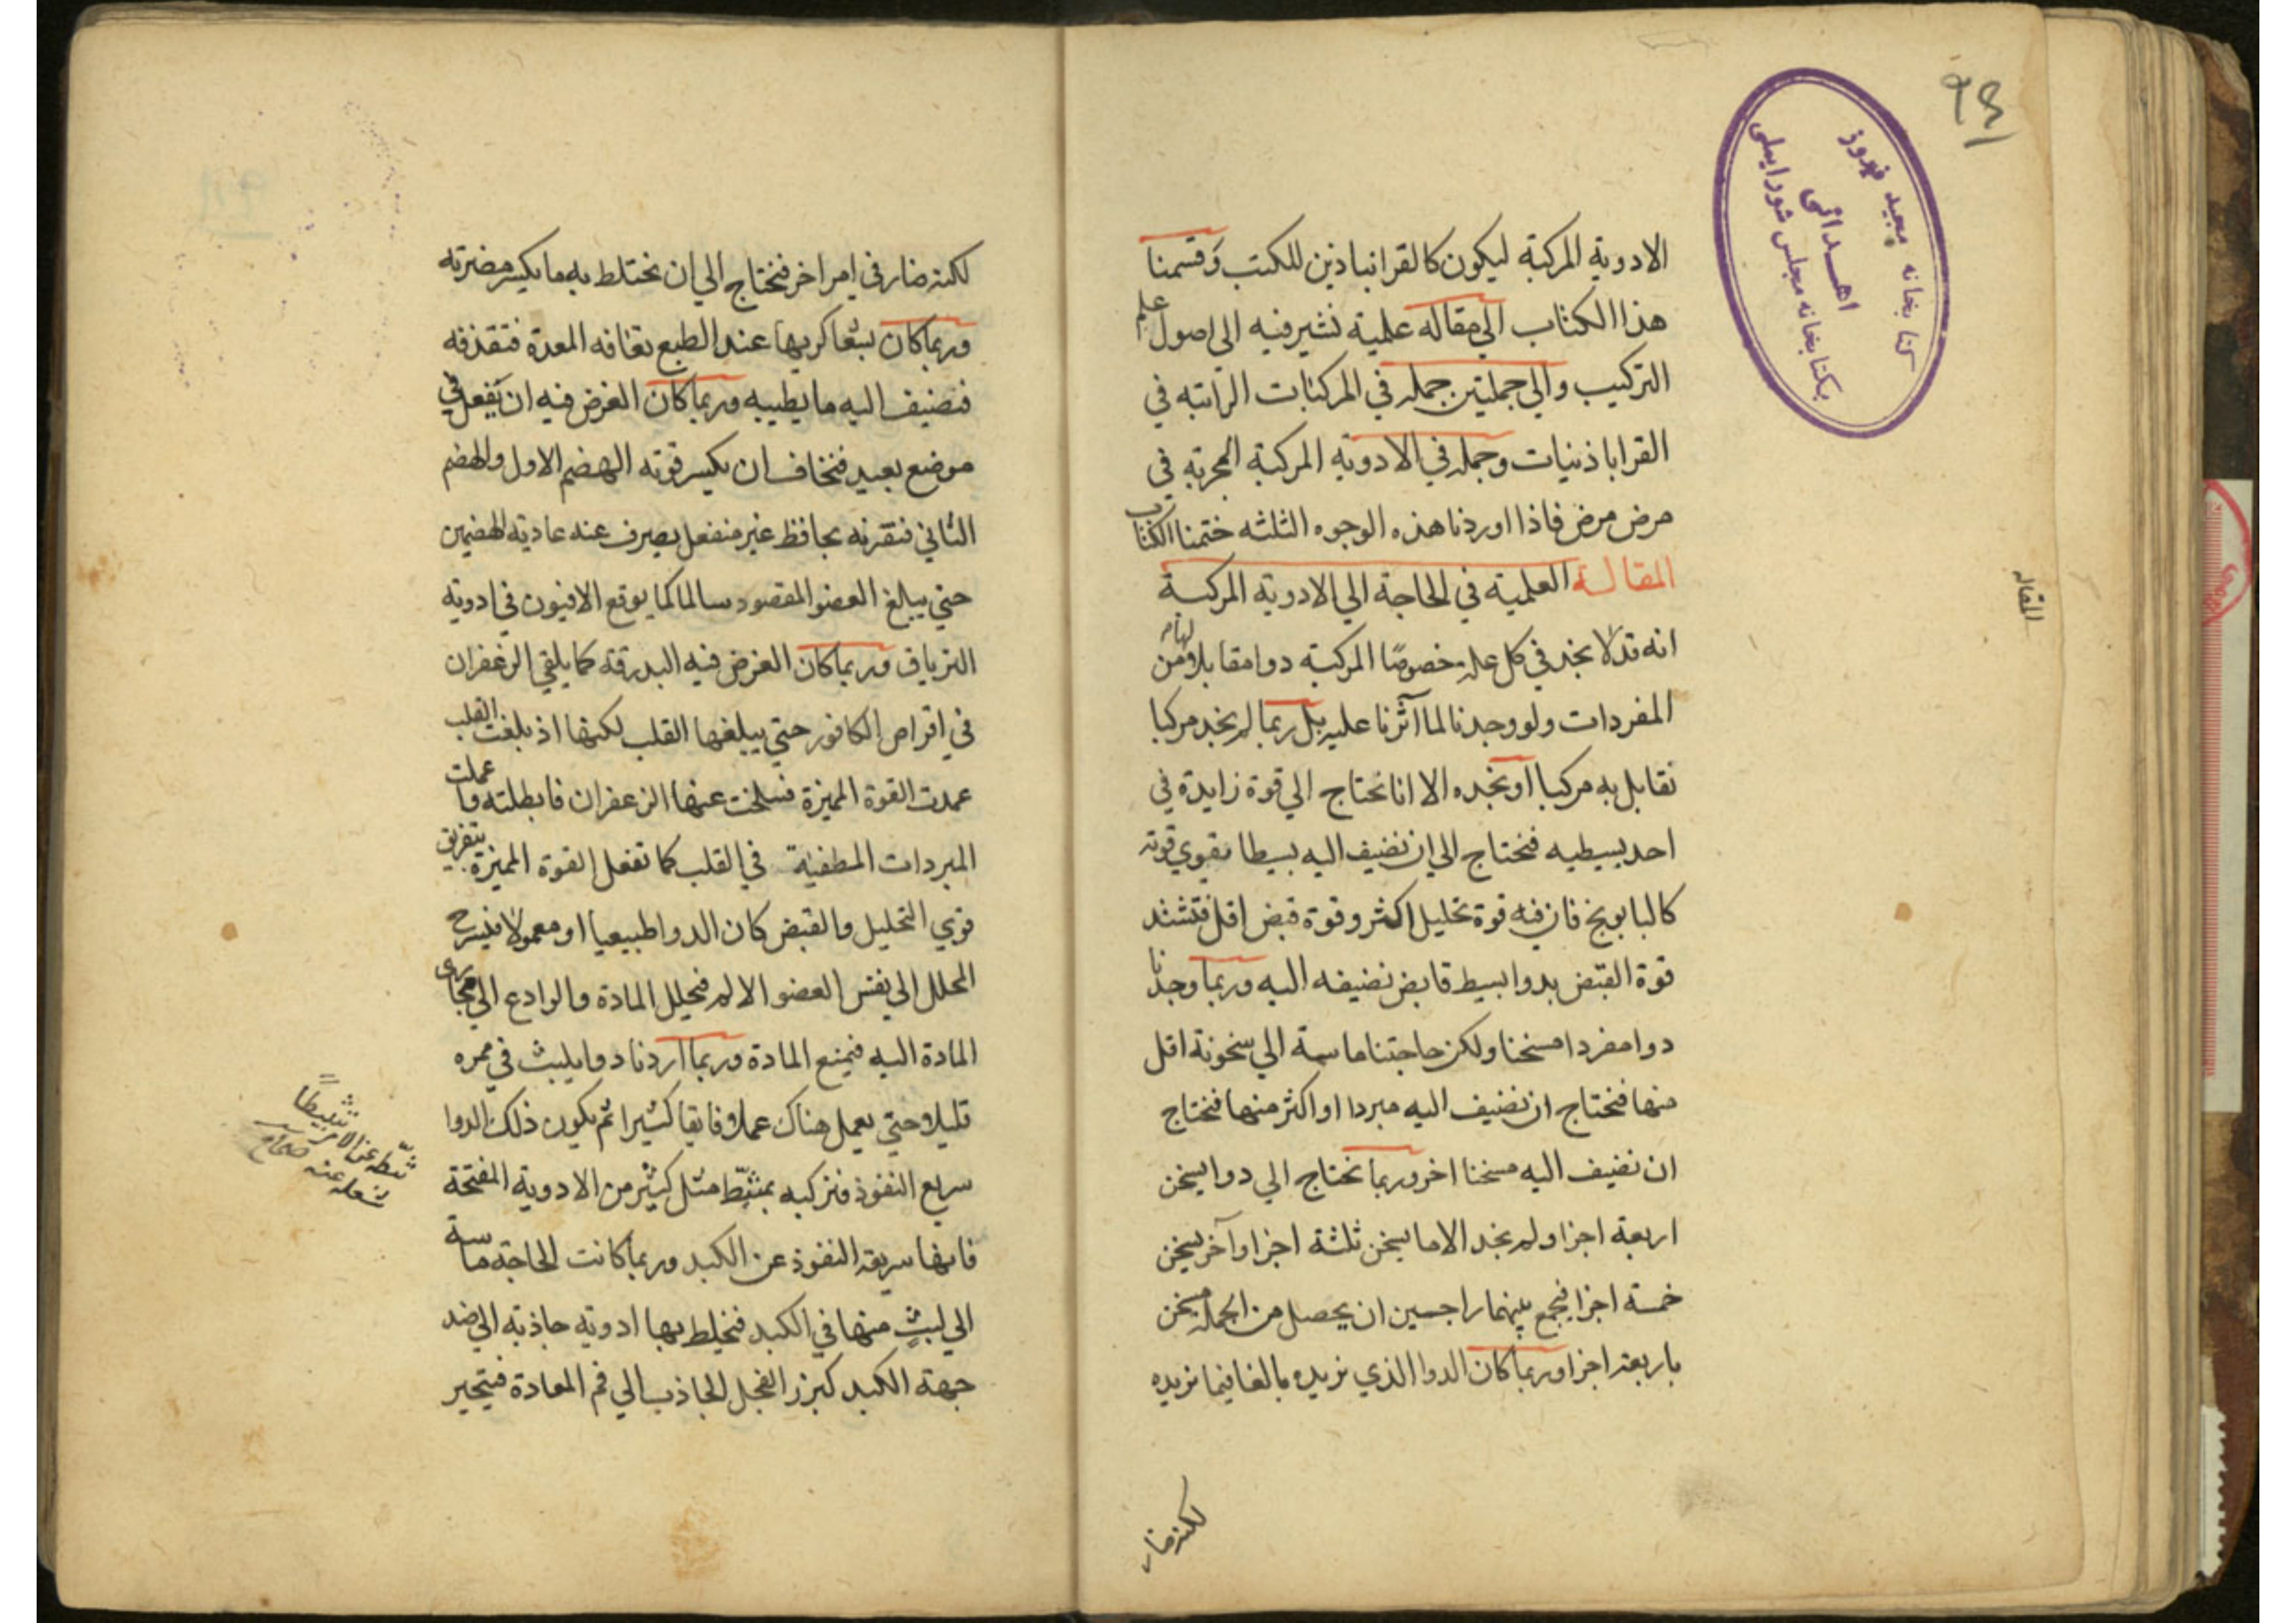 الادوية المركبة ليكون كالقرانباذين للكتب وقسمنا
هذا الكتاب الي مقاله علمية نشير فيه الى اصول علم
التركيب والي جملتين جمله في المركبات الراتبه في
القراباذنيات وجمله في الادويه المركبة المجربه في
مرض مرض فاذا اوردنا هذه الوجوه الثلثه ختمنا الكتاب
المقالة العلميه في الحاجة الي الادوية المركبة
انه قد لا نجد في كل علة خصوصًا المركبة دوا مقابلا لها من
المفردات ولو وجدنا لما آثرنا عليه بل ربما لم نجد مركبا
نقابل به مركبا او نجده الا انا نحتاج الي قوة زايدة في
احد بسيطيه فنحتاج الي ان نضيف اليه بسيطا يقوي قوته
كالبابونج فان فيه قوة تحليل اكثر وقوة قبض اقل فتشتد
قوة القبض بدوا بسيط قابض نضيفه اليه وربما وجدنا
دوا مفردا مسخنا ولكن حاجتنا ماسة الي سخونة اقل
منها فنحتاج ان نضيف اليه مبردا او اكثر منها فنحتاج
ان نضيف اليه مسخنا اخر وربما نحتاج الي دوا يسخن
اربعة اجزا ولم نجد الا ما يسخن ثلثة اجزا وآخر يسخن
خمسة اجزا فنجمع بينهما راجين ان يحصل من الجملة مسخن
باربعة اجزا وربما كان الدوا الذي نريده بالغا فيما نريده
لكنه ضار
المقاله
كتابخانه مجيد فيروز
اهدائى
بكتابخانه مجلس شوراىملى
لكنه ضار في امر اخر فنحتاج الي ان نختلط به ما يكسر مضرته
وربما كان بشعا كريها عند الطبع تعافه المعدة فتقذفه
فنضيف اليه ما يطيبه وربما كان الغرض فيه ان يفعل في
موضع بعيد فنخاف ان يكسر قوته الهضم الاول والهضم
الثاني فنقرنه بحافظ غير منفعل يصرف عنه عاديه الهضمين
حتي يبلغ العضو المقصود سالما كما يوقع الافيون في ادوية
الترياق وربما كان الغرض فيه البدرقة كما يلقي الزعفران
في اقراص الكافور حتي يبلغها القلب لكنها اذ بلغت القلب
عمدت القوة المميزة فسلخت عنها الزعفران فابطلته واعملت
المبردات المطفية في القلب كما تفعل القوة المميزة بتفريق
قوي التحليل والقبض كان الدوا طبيعيا او معمولا فيسرح
المحلل الي نفس العضو الالم فيحلل المادة والرادع الي مجاري
المادة اليه فيمنع المادة وربما اردنا دوا يلبث في ممره
قليلا حتي يعمل هناك عملا فايقا كثيرا ثم يكون ذلك الدوا
سريع النفوذ فنركبه بمثبّط مثل كثير من الادوية المفتحة
فانها سريعه النفوذ عن الكبد وربما كانت الحاجة ماسة
الي لبثٍ منها في الكبد فنخلط بها ادويه جاذبة الي ضد
جهة الكبد كبزر الفجل الجاذب الي فم المعادة فيتحير
ثبّطه عن الامر تثبيطًا
شغله عنه صحاح